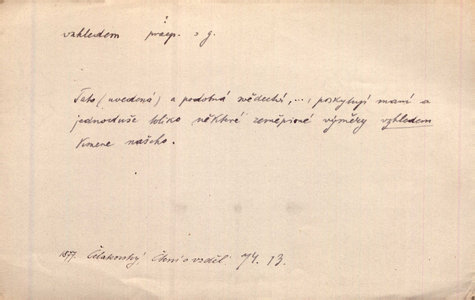 vzhledem praep. s g.
Tato (uvedená) a podobná svědectví, ... poskytují nám a
jednoduše toliko některé zeměpisné výměry vzhledem
kmene našeho.
1877. Čelakovský Čtení o vzděl. 74. 13.